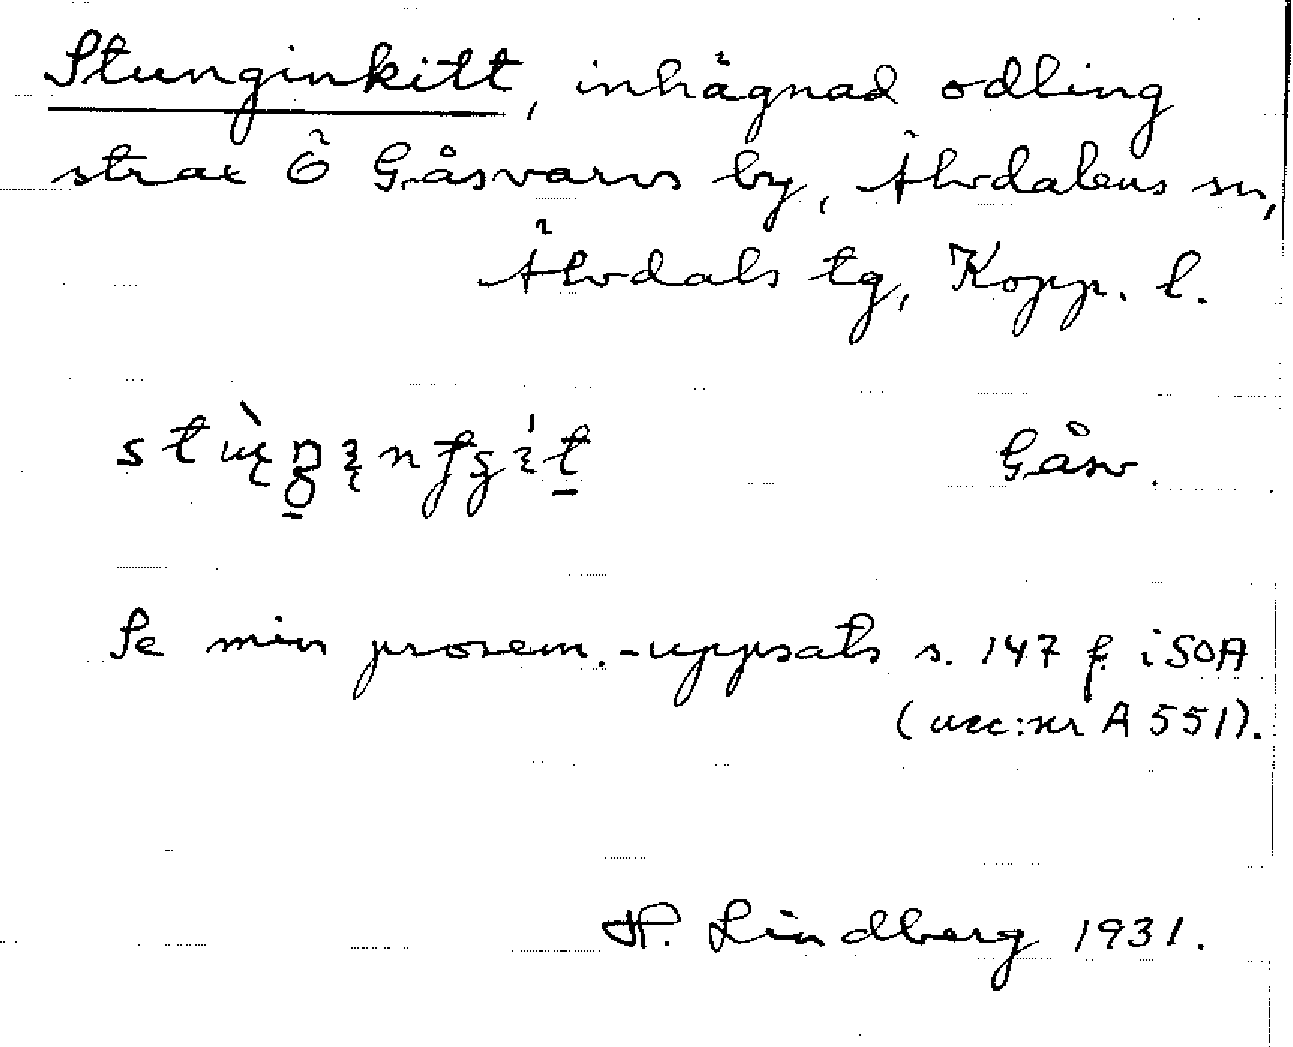 Stunginkitt, inhägnad odling
strax Ö Gåsvarvs by, Älvdalens sn,
Älvdals tg, Kopp. l.
Gåsv.
Se min prosem.-uppsats s. 147 f. i SOA
(acc:nr A 551).
K. Lindberg 1931.